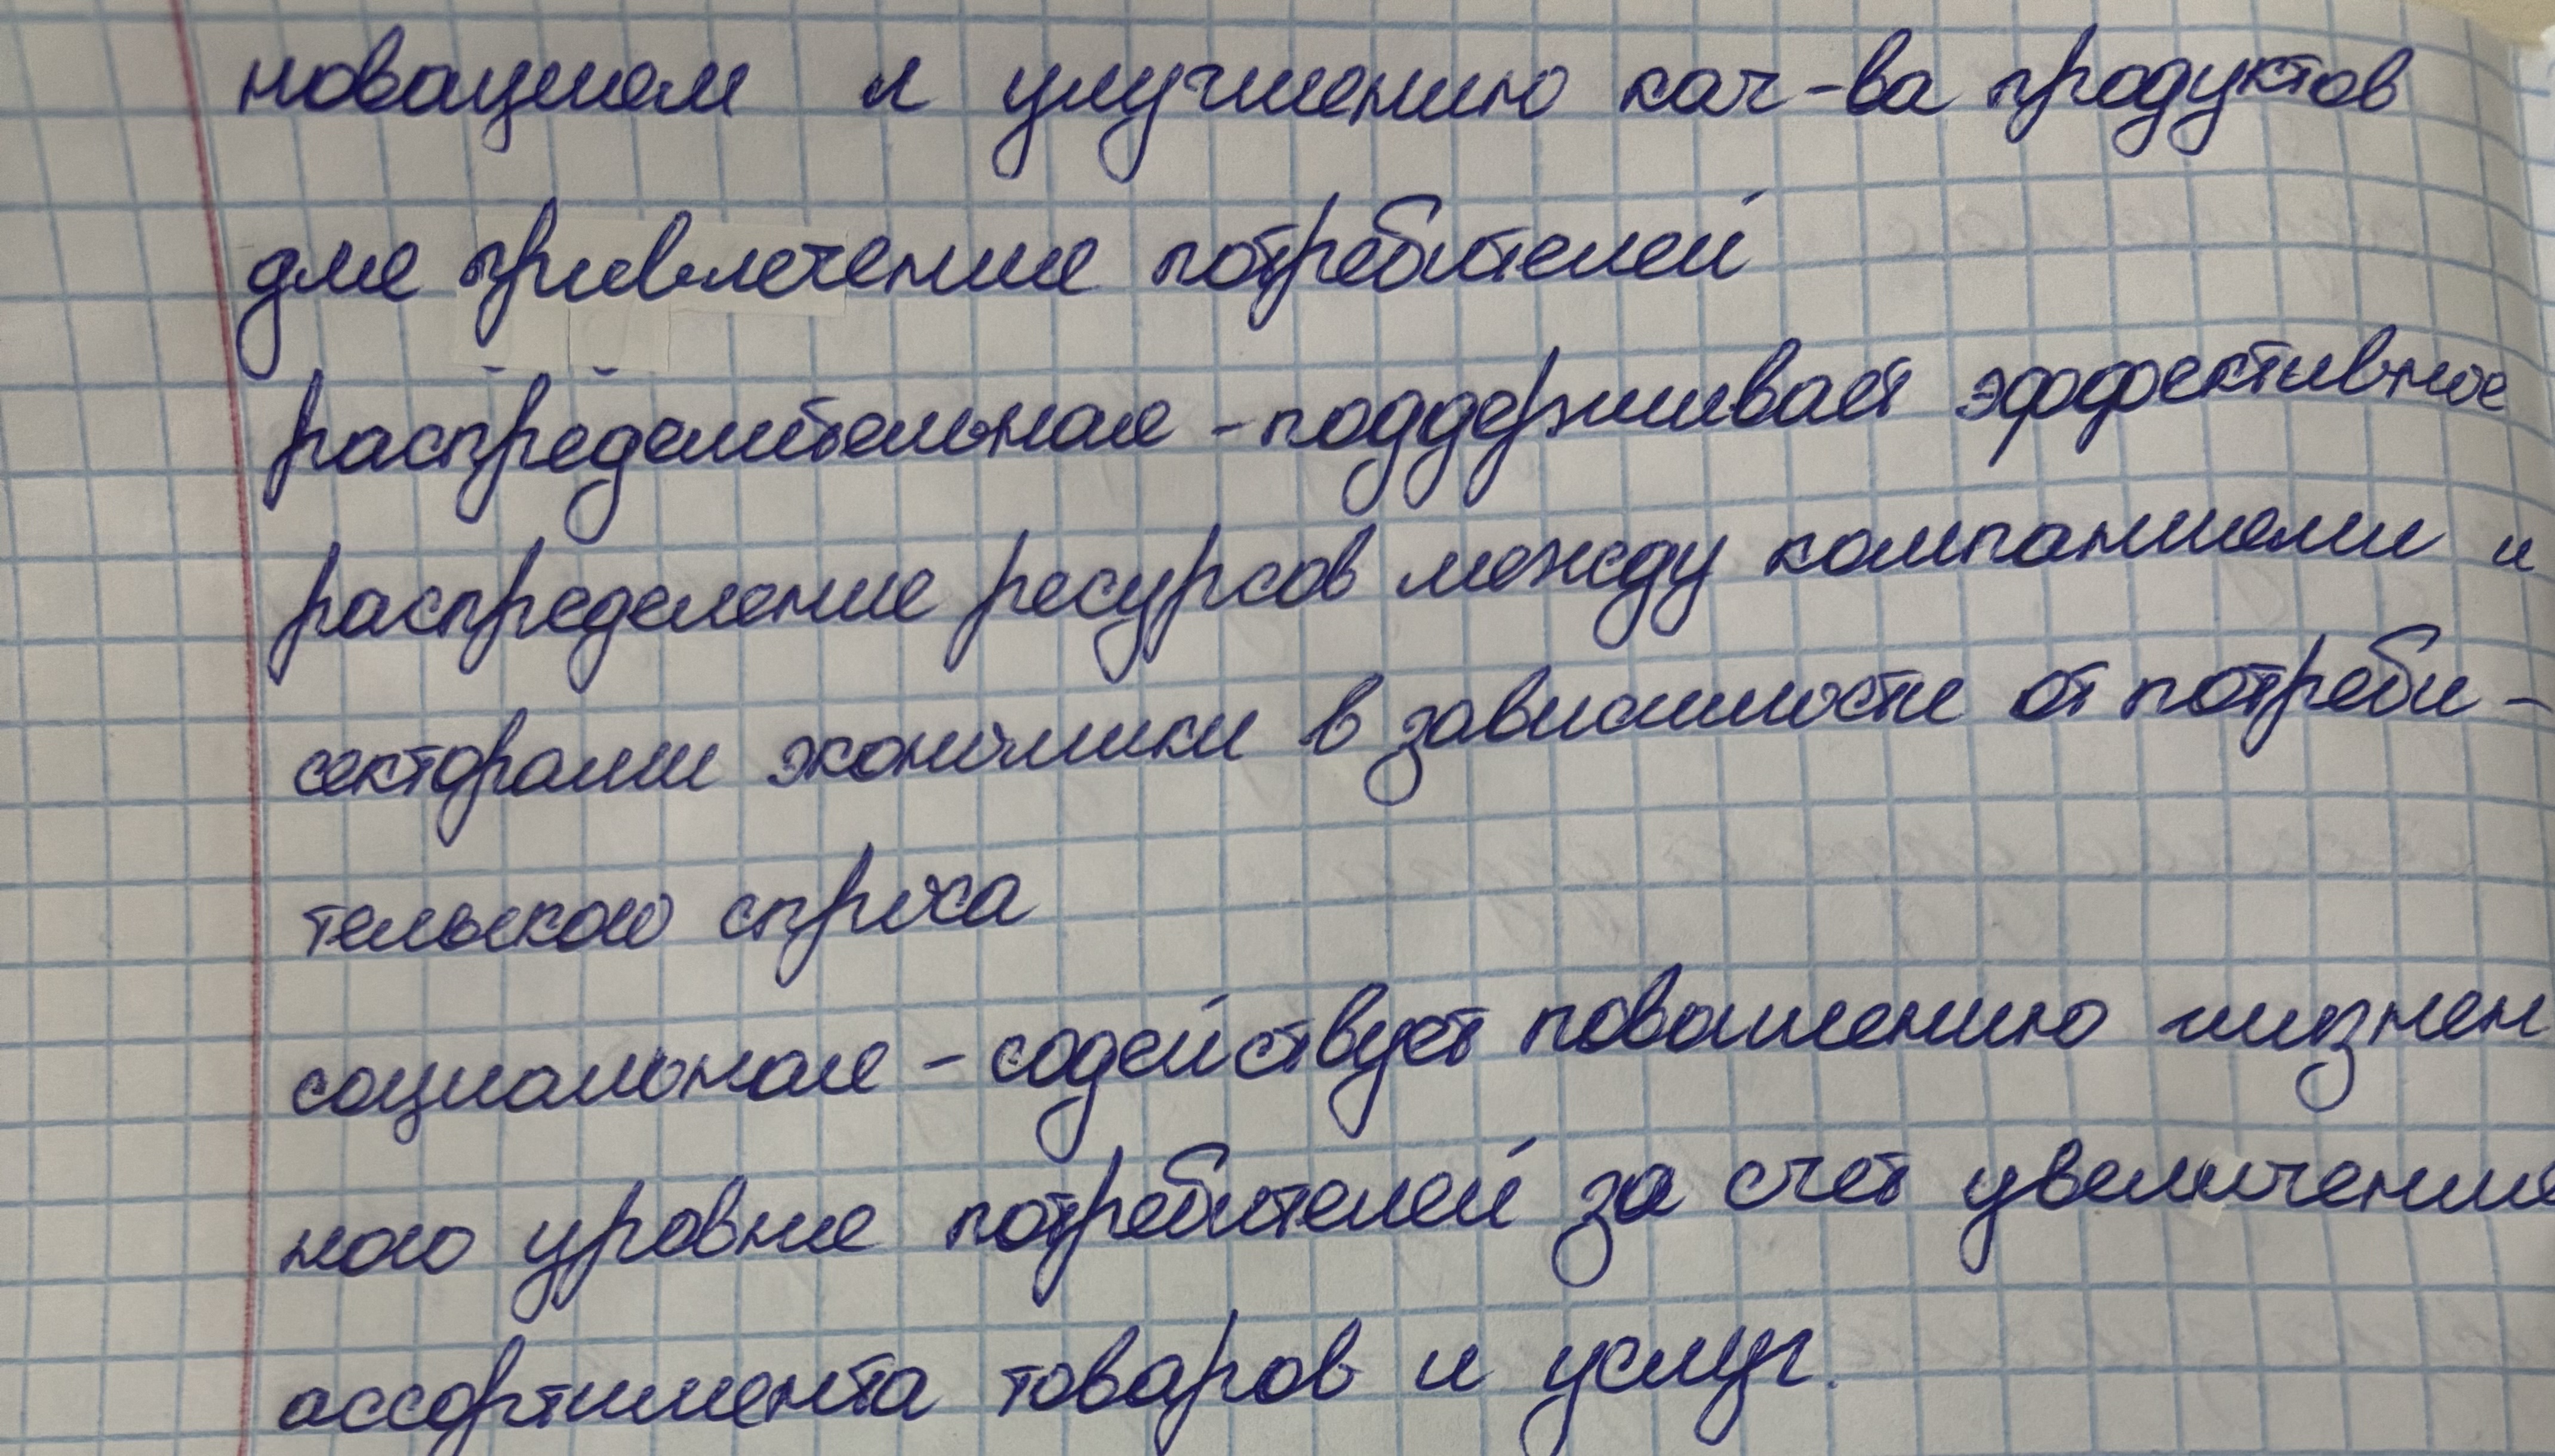 новациям и улучшению кач-ва продуктов
для привлечения потребителей
распределительная - поддерживает эффективное
распределение ресурсов между компаниями и
секторами экономики в зависимости от потреби-
тельского спроса
социальная - содействует повышению жизнен
ного уровня потребителей за счет увеличения
ассортимента товаров и услуг.